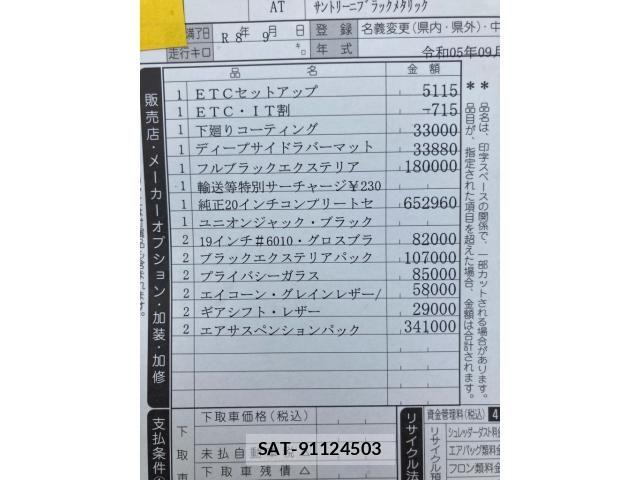 AT サントリーニブラックメタリック
満了日 R8年 9月 日 登録 名義変更(県内・県外)・中
走行キロ キロ 年式 令和05年09月
販売店・メーカーオプション・加装・加修
品名 金額
1 ETCセットアップ 5115
1 ETC・IT割 -715
1 下廻りコーティング 33000
1 ディープサイドラバーマット 33880
1 フルブラックエクステリア 180000
1 輸送等特別サーチャージ¥230
1 純正20インチコンプリートセ 652960
1 ユニオンジャック・ブラック
2 19インチ#6010・グロスブラ 82000
2 ブラックエクステリアパック 107000
2 プライバシーガラス 85000
2 エイコーン・グレインレザー/ 58000
2 ギアシフト・レザー 29000
2 エアサスペンションパック 341000
**品名は、印字スペースの関係で、一部カットされる場合があります。
品目が、指定された項目を超えた場合、金額は合計されます。
支払条件
下取車
下取車価格(税込)
未払自動
下取車残債△
リサイクル法
資金管理料(税込) 4
リサイクル預
シュレッダーダスト料金
エアバッグ類料金
フロン類料金
SAT-91124503